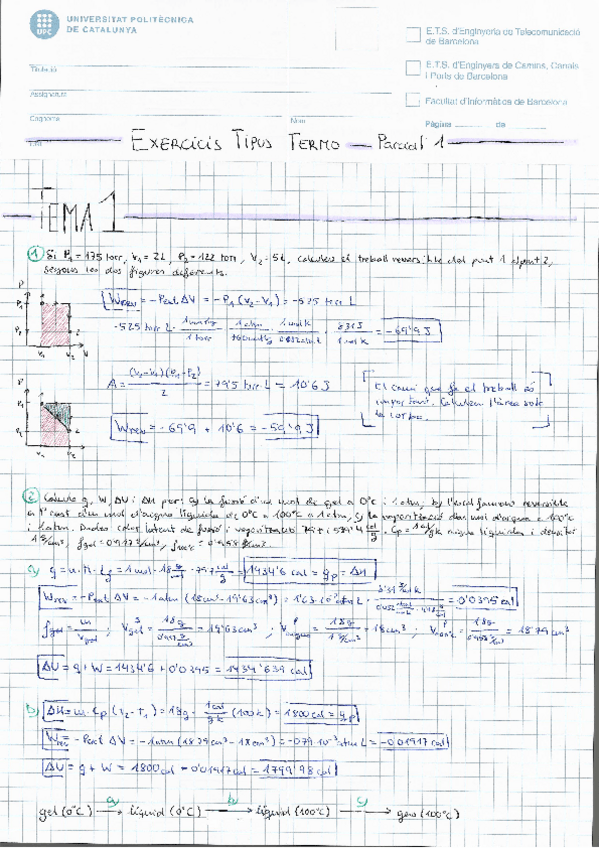 UNIVERSITAT POLITÈCNICA
DE CATALUNYA
UPC
E.T.S. d'Enginyeria de Telecomunicació
de Barcelona
E.T.S. d'Enginyers de Camins, Canals
i Ports de Barcelona
Facultat d'Informàtica de Barcelona
Titulació
Assignatura
Cognoms
Nom
Pàgina de
EXERCICIS TIPUS TERMO — Parcial 1
TEMA 1
① Si P₁ = 175 torr, V₁ = 2L, P₂ = 122 torr, V₂ = 5L, calculeu el treball reversible del punt 1 al punt 2,
segons les dos figures diferents.
P
P₁
P₂
V₁ V₂ V
Wrev = -Pext ΔV = -P₁ (V₂-V₁) = -525 torr L
-525 torr L · = -69'9 J
P
P₁
P₂
V₁ V₂
A = (V₂-V₁)(P₁-P₂) / 2 = 79'5 torr L = 10'6 J
Wrev = -69'9 + 10'6 = -59'9 J
El camí que fa el treball és
important. Calculem l'àrea sota
la corba.
② Calcula q, W, ΔU i ΔH per: a) la fusió d'un mol de gel a 0ºC i 1 atm, b) l'escalfament reversible
a P const d'un mol d'aigua líquida de 0ºC a 100ºC a 1 atm, c) la vaporització d'un mol d'aigua a 100ºC
i 1 atm. Dades: calor latent de fusió i vaporització 79'7 i 539'4 cal/g, Cp = 1 cal/gK aigua líquida i densitat
a) q = n · M · Lf = 1 mol · 18 g/mol · 79'7 cal/g = 1434'6 cal = qp = ΔH
Wrev = -Pext ΔV = -1 atm (18cm³ - 19'63cm³) = 1'63·10⁻³ atm L · = 0'0395 cal
ρgel = m / Vgel ; = 19'63 cm³ ; = 18 cm³ ; = 18'79 cm³
ΔU = q + W = 1434'6 + 0'0395 = 1434'639 cal
b) ΔH = m · Cp (T₂-T₁) = 18g · 1cal/gK (100K) = 1800 cal = qp
Wrev = -Pext ΔV = -1 atm (18'79 cm³ - 18 cm³) = -0'79·10⁻³ atm L = -0'01917 cal
ΔU = q + W = 1800 cal - 0'01917 cal = 1799'98 cal
gel (0ºC) a) → líquid (0ºC) b) → líquid (100ºC) c) → gas (100ºC)